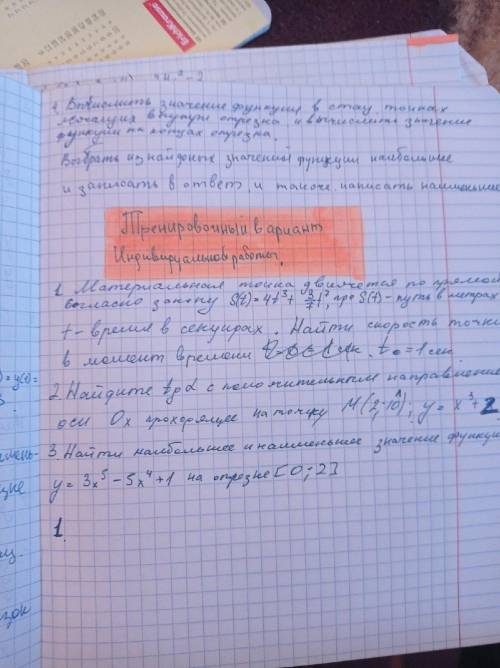 ErichKrause
4. Вычислить значение функции в стац. точках
лежащих внутри отрезка и вычислить значение
функции на концах отрезка.
Выбрать из найденых значений функции наибольшее
и записать в ответ, и также написать наименьшее
Тренировочный вариант
Индивидуальной работы.
1. Материальная точка движется по прямой
согласно закону S(t) = 4t³ +, где S(t) - путь в метрах
t - время в секундах. Найти скорость точки
в момент времени t₀ = 1 сек
2. Найдите tg α с положительным направлением
оси Ox проходящее на точку M (2; 10); y = x³ + 2
3. Найти наибольшее и наименьшее значение функции
y = 3x⁵ - 5x⁴ + 1 на отрезке [0; 2]
1.